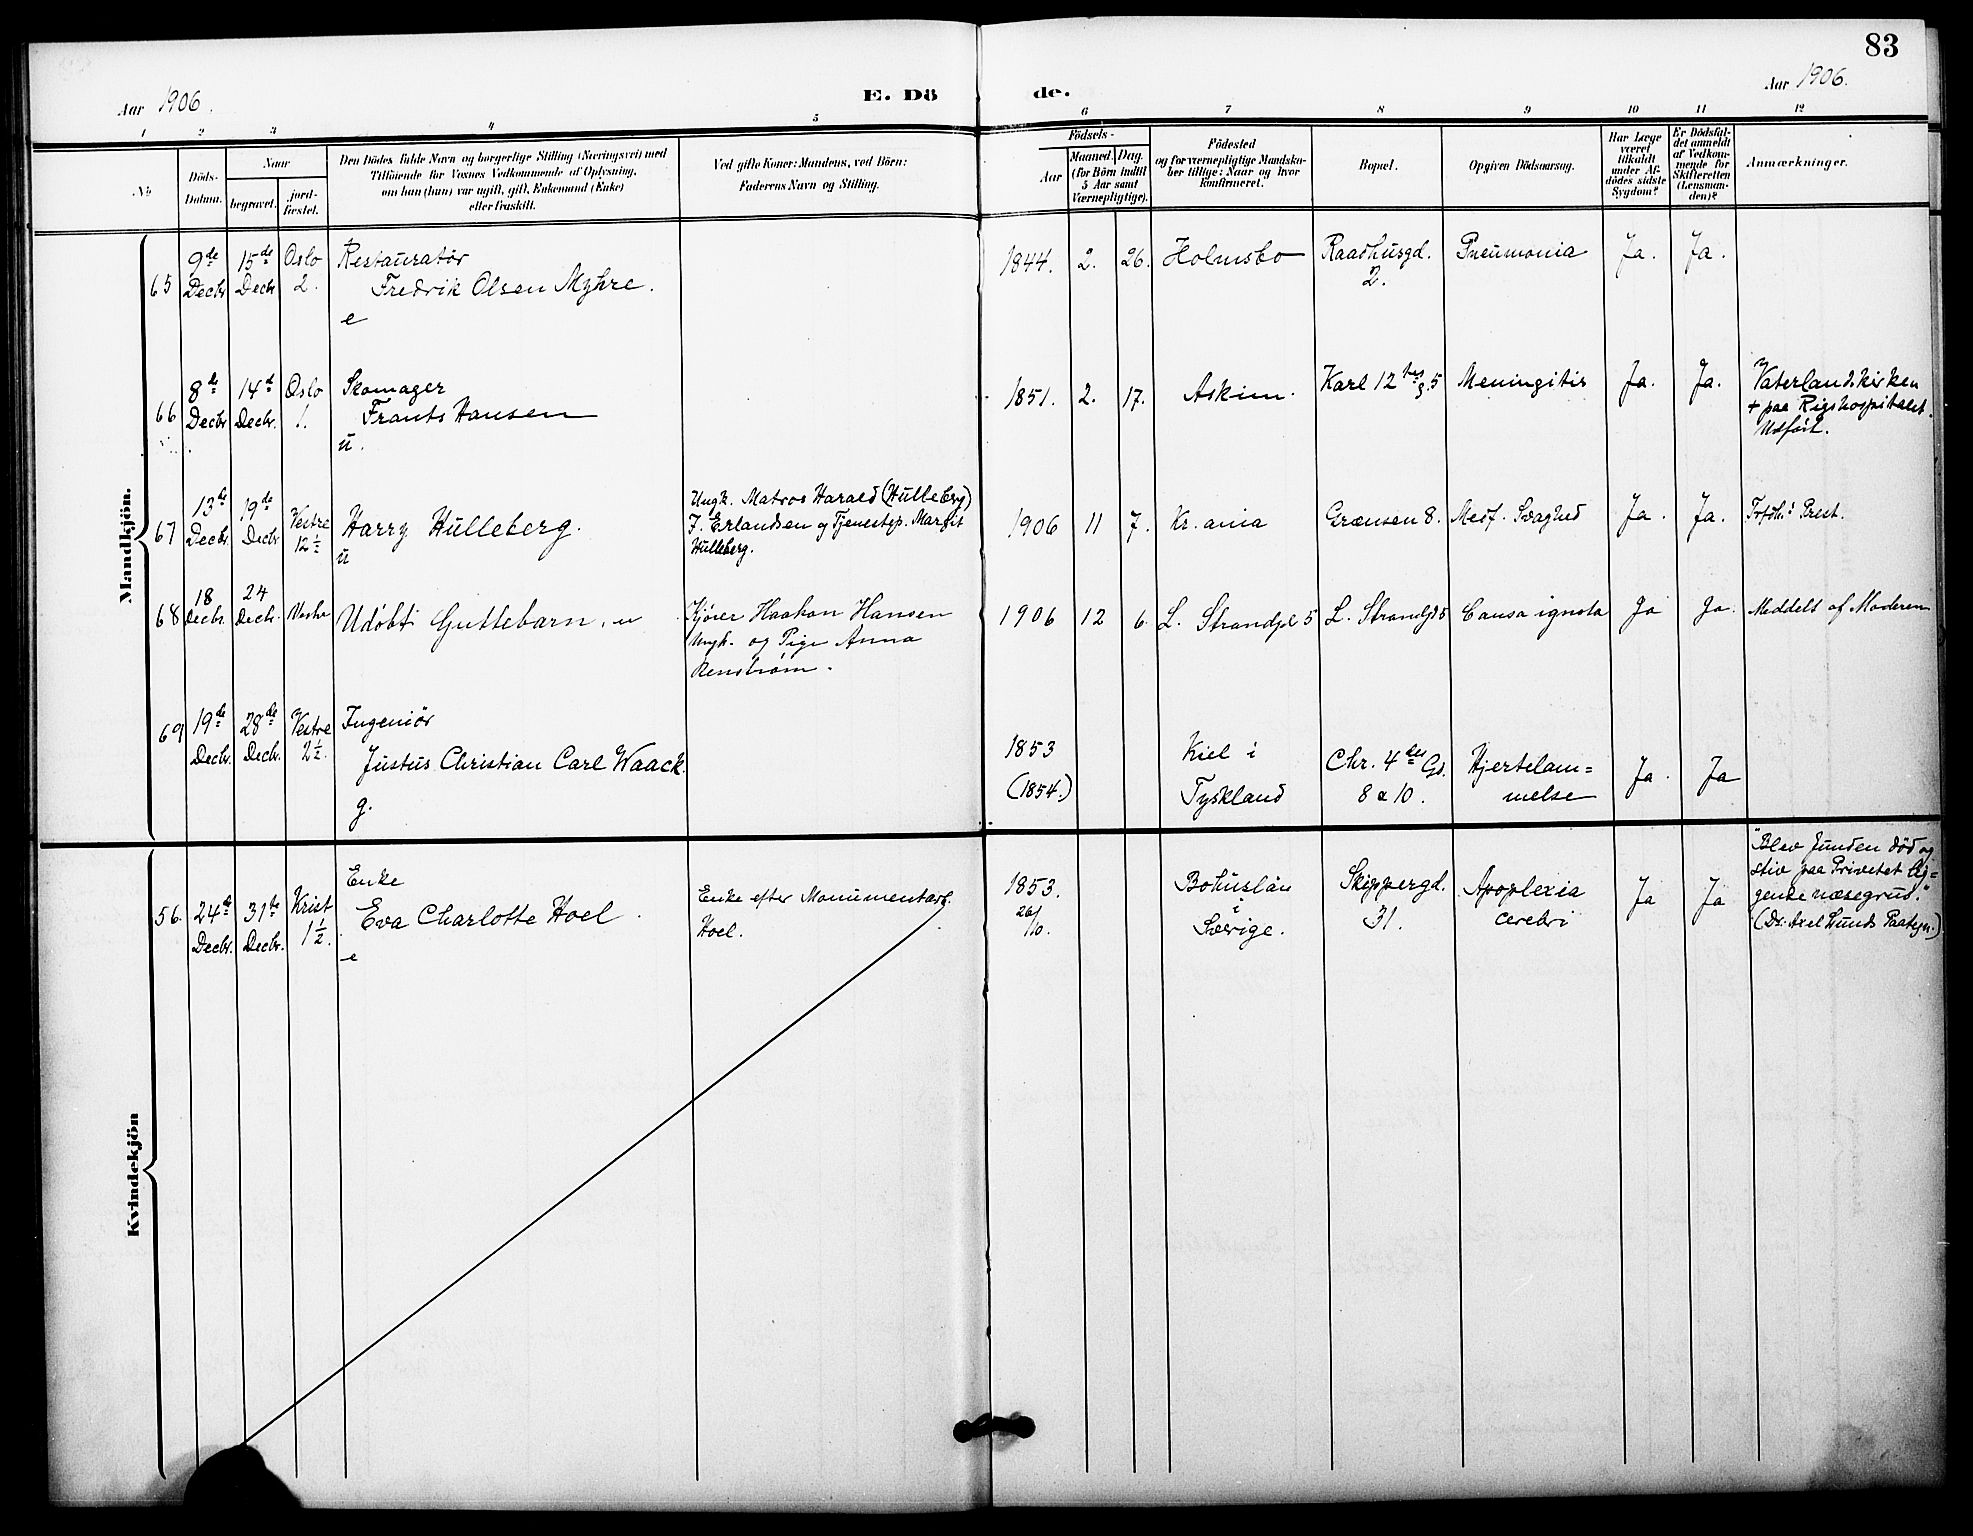 83
Aar 1906.
E. Dö
de.
Aar 1906.
1 2 3 4 5 6 7 8 9 10 11 12
No
Döds-
Datum.
Naar
begravet.
jord-
fæstet.
Den Dödes fulde Navn og borgerlige Stilling (Næringsvei) med
Tilföiende for Voxnes Vedkommende af Oplysning,
om han (hun) var ugift, gift, Enkemand (Enke)
eller fraskilt.
Ved gifte Koner: Mandens, ved Börn:
Faderens Navn og Stilling.
Födsels-
Aar
Maaned. Dag.
(for Börn indtil
5 Aar samt
Værnepligtige).
Födested
og for værnepligtige Mandska-
ber tillige: Naar og hvor
konfirmeret.
Bopæl.
Opgiven Dödsaarsag.
Har Læge
været
tilkaldt
under Af-
dödes sidste
Sygdom?
Er Dödsfal-
det anmeldt
af Vedkom-
mende for
Skifteretten
(Lensman-
den)?
Anmærkninger.
Mandkjön.
65
9de
Decbr
15de
Decbr
Oslo
2.
Restauratør
Fredrik Olsen Myhre.
e
1844. 2. 26.
Holmsbo
Raadhusgd.
2.
Pneumonia
Ja. Ja.
66
8de
Decbr
14de
Decbr.
Oslo
1.
Skomager
Frants Hansen
u.
1851. 2. 17.
Askim.
Karl 12tes g. 5
Meningitis
Ja. Ja.
Vaterlandskirken
+ paa Rigshospitalet.
Udført.
67
13de
Decbr.
19de
Decbr.
Vestre
12½
Harry Hulleberg.
u
Ungk. Matros Harald (Hulleberg)
J. Erlandsen og Tjenestep. Margit
Hulleberg.
1906 11 7.
Kr.ania
Grænsen 8.
Medf. Svaghed
Ja. Ja.
Prest.
68
18
Decbr.
24
Decbr.
Vestre
Udøbt Guttebarn, u
Kjører Haakon Hansen
Ungk. og Pige Anna
Renström.
1906 12 6.
L. Strandgd 5
L. Strandgd 5
Causa ignota
Ja Ja.
Meddelt af Moderen
69
19de
Decbr.
28de
Decbr.
Vestre
2½.
Ingeniør
Justus Christian Carl Waack.
g.
1853
(1854.)
Kiel i
Tyskland
Chr. 4des Gd.
8 & 10.
Hjertelam=
melse
Ja. Ja
Kvindekjön
56.
24de
Decbr.
31te
Decbr.
Krist
1½
Enke
Eva Charlotte Hoel.
e
Enke efter Monumentarb.
Hoel.
1853.
26/10.
Bohuslän
i
Sverige.
Skippergd.
31.
Apoplexia
cerebri
Ja Ja
"Blev funden død og
stiv paa Privetet
(Dr. Axel Lunds Paategn.)